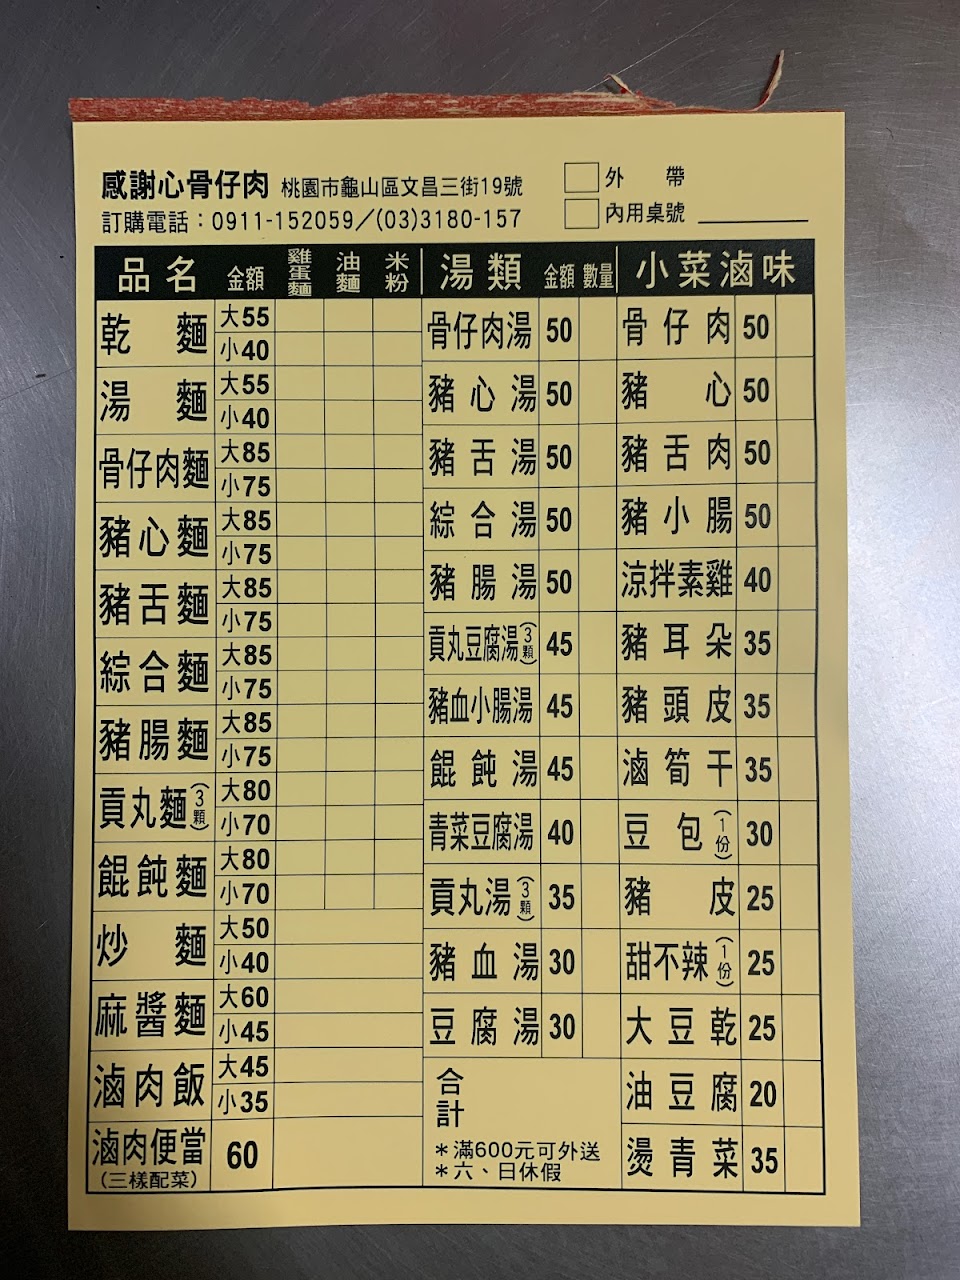 感謝心骨仔肉 桃園市龜山區文昌三街19號
訂購電話：0911-152059／(03)3180-157
外帶
內用桌號
品名 金額 雞蛋麵 油麵 米粉
乾麵 大55 小40
湯麵 大55 小40
骨仔肉麵 大85 小75
豬心麵 大85 小75
豬舌麵 大85 小75
綜合麵 大85 小75
豬腸麵 大85 小75
貢丸麵(3顆) 大80 小70
餛飩麵 大80 小70
炒麵 大50 小40
麻醬麵 大60 小45
滷肉飯 大45 小35
滷肉便當 (三樣配菜) 60
湯類 金額 數量
骨仔肉湯 50
豬心湯 50
豬舌湯 50
綜合湯 50
豬腸湯 50
貢丸豆腐湯(3顆) 45
豬血小腸湯 45
餛飩湯 45
青菜豆腐湯 40
貢丸湯(3顆) 35
豬血湯 30
豆腐湯 30
合計
＊滿600元可外送
＊六、日休假
小菜滷味
骨仔肉 50
豬心 50
豬舌肉 50
豬小腸 50
涼拌素雞 40
豬耳朵 35
豬頭皮 35
滷筍干 35
豆包(1份) 30
豬皮 25
甜不辣(1份) 25
大豆乾 25
油豆腐 20
燙青菜 35